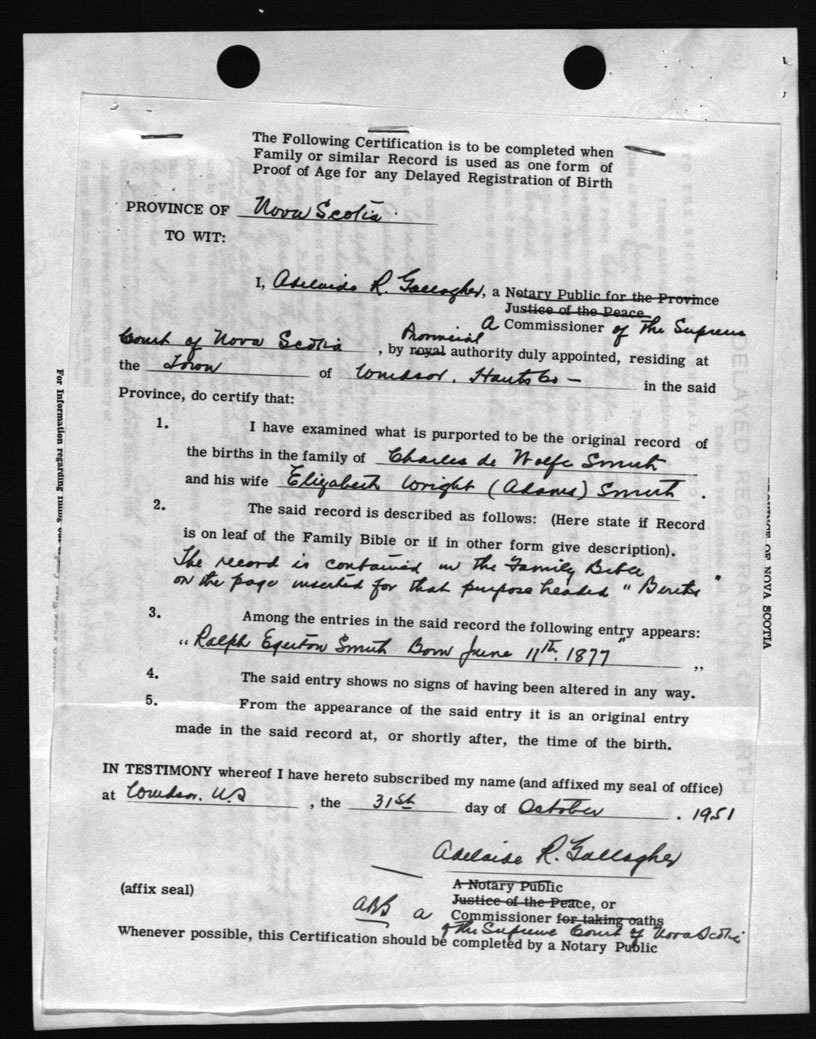 The Following Certification is to be completed when
Family or similar Record is used as one form of
Proof of Age for any Delayed Registration of Birth
PROVINCE OF Nova Scotia
TO WIT:
I, Adelaide R. Gallagher, a Notary Public for the Province
Justice of the Peace
A Commissioner of The Supreme
Court of Nova Scotia, by royal Provincial authority duly appointed, residing at
the Town of Windsor, Hants Co – in the said
Province, do certify that:
1. I have examined what is purported to be the original record of
the births in the family of Charles de Wolfe Smith
and his wife Elizabeth Wright (Adams) Smith.
2. The said record is described as follows: (Here state if Record
is on leaf of the Family Bible or if in other form give description).
The record is contained in the Family Bible
on the page inserted for that purpose headed "Births"
3. Among the entries in the said record the following entry appears:
"Ralph Egerton Smith Born June 11th. 1877"
4. The said entry shows no signs of having been altered in any way.
5. From the appearance of the said entry it is an original entry
made in the said record at, or shortly after, the time of the birth.
IN TESTIMONY whereof I have hereto subscribed my name (and affixed my seal of office)
at Windsor. N.S, the 31st day of October. 1951
Adelaide R. Gallagher
A Notary Public
(affix seal) Justice of the Peace, or
a Commissioner for taking oaths
of The Supreme Court of Nova Scotia
Whenever possible, this Certification should be completed by a Notary Public
For Information regarding
OF NOVA SCOTIA